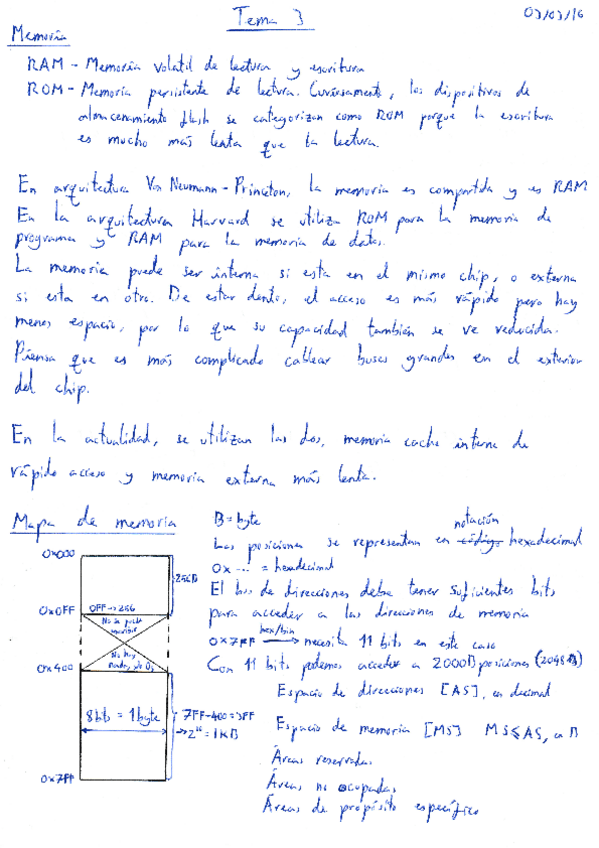 Tema 3
03/03/16
Memoria
RAM - Memoria volatil de lectura y escritura
ROM - Memoria persistente de lectura. Curiosamente, los dispositivos de
almacenamiento flash se categorizan como ROM porque la escritura
es mucho más lenta que la lectura.
En arquitectura Von Neumann - Princeton, la memoria es compartida y es RAM
En la arquitectura Harvard se utiliza ROM para la memoria de
programa y RAM para la memoria de datos.
La memoria puede ser interna si esta en el mismo chip, o externa
si esta en otro. De estar dentro, el acceso es más rápido pero hay
menos espacio, por lo que su capacidad también se ve reducida.
Piensa que es más complicado cablear buses grandes en el exterior
del chip.
En la actualidad, se utilizan las dos, memoria cache interna de
rápido acceso y memoria externa más lenta.
Mapa de memoria
B = byte
notación
Las posiciones se representan en código hexadecimal
0x ... = hexadecimal
El bus de direcciones debe tener suficientes bits
para acceder a las direcciones de memoria
0x7FF hex/bin necesita 11 bits en este caso
Con 11 bits podemos acceder a 2000B posiciones (2048 B)
Espacio de direcciones [AS], en decimal
Espacio de memoria [MS] MS≤AS, en B
Áreas reservadas
Áreas no ocupadas
Áreas de propósito específico
0x000
256B
0x0FF
0FF → 256
No se puede
escribir
No hay
nada
0x400
8 bits = 1 byte
7FF-400=3FF
→ 2¹⁰ = 1KB
0x7FF